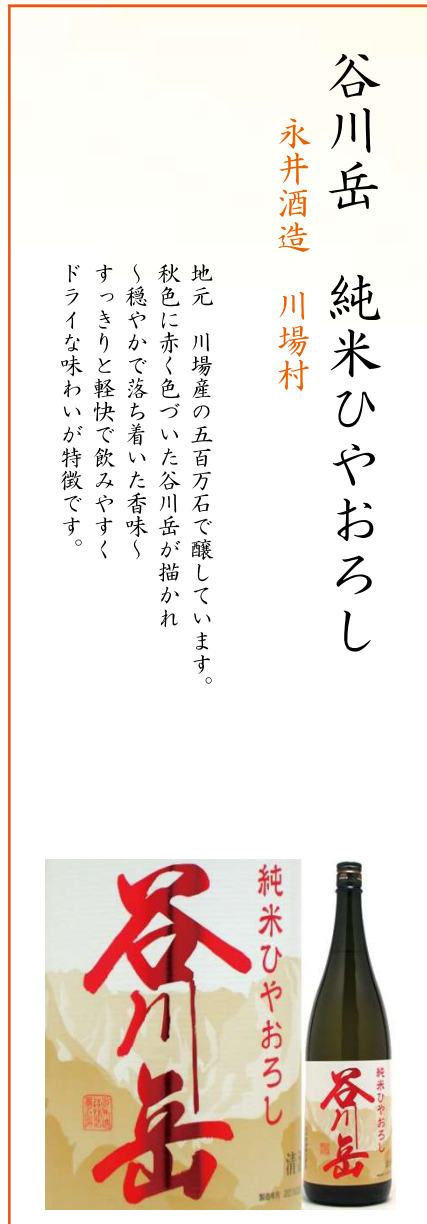 谷川岳 純米ひやおろし
永井酒造 川場村
地元 川場産の五百万石で醸しています。
秋色に赤く色づいた谷川岳が描かれ
～穏やかで落ち着いた香味～
すっきりと軽快で飲みやすく
ドライな味わいが特徴です。
純米ひやおろし
谷川岳
清
製造年月
純米ひやおろし
谷川岳